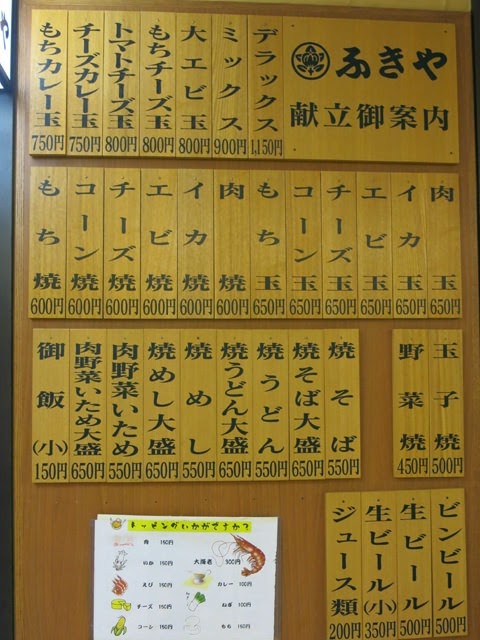 ふきや
献立御案内
デラックス 1,150円
ミックス 900円
大エビ玉 800円
もちチーズ玉 800円
トマトチーズ玉 800円
チーズカレー玉 750円
もちカレー玉 750円
肉玉 650円
イカ玉 650円
エビ玉 650円
チーズ玉 650円
コーン玉 650円
もち玉 650円
肉焼 600円
イカ焼 600円
エビ焼 600円
チーズ焼 600円
コーン焼 600円
もち焼 600円
玉子焼 500円
野菜焼 450円
焼そば 550円
焼そば大盛 650円
焼うどん 550円
焼うどん大盛 650円
焼めし 550円
焼めし大盛 650円
肉野菜いため 550円
肉野菜いため大盛 650円
御飯(小) 150円
ビンビール 500円
生ビール 500円
生ビール(小) 350円
ジュース類 200円
トッピングいかがですか?
肉 150円
いか 150円
えび 150円
チーズ 100円
コーン 100円
大海老 300円
カレー 100円
ねぎ 100円
もち 150円
や